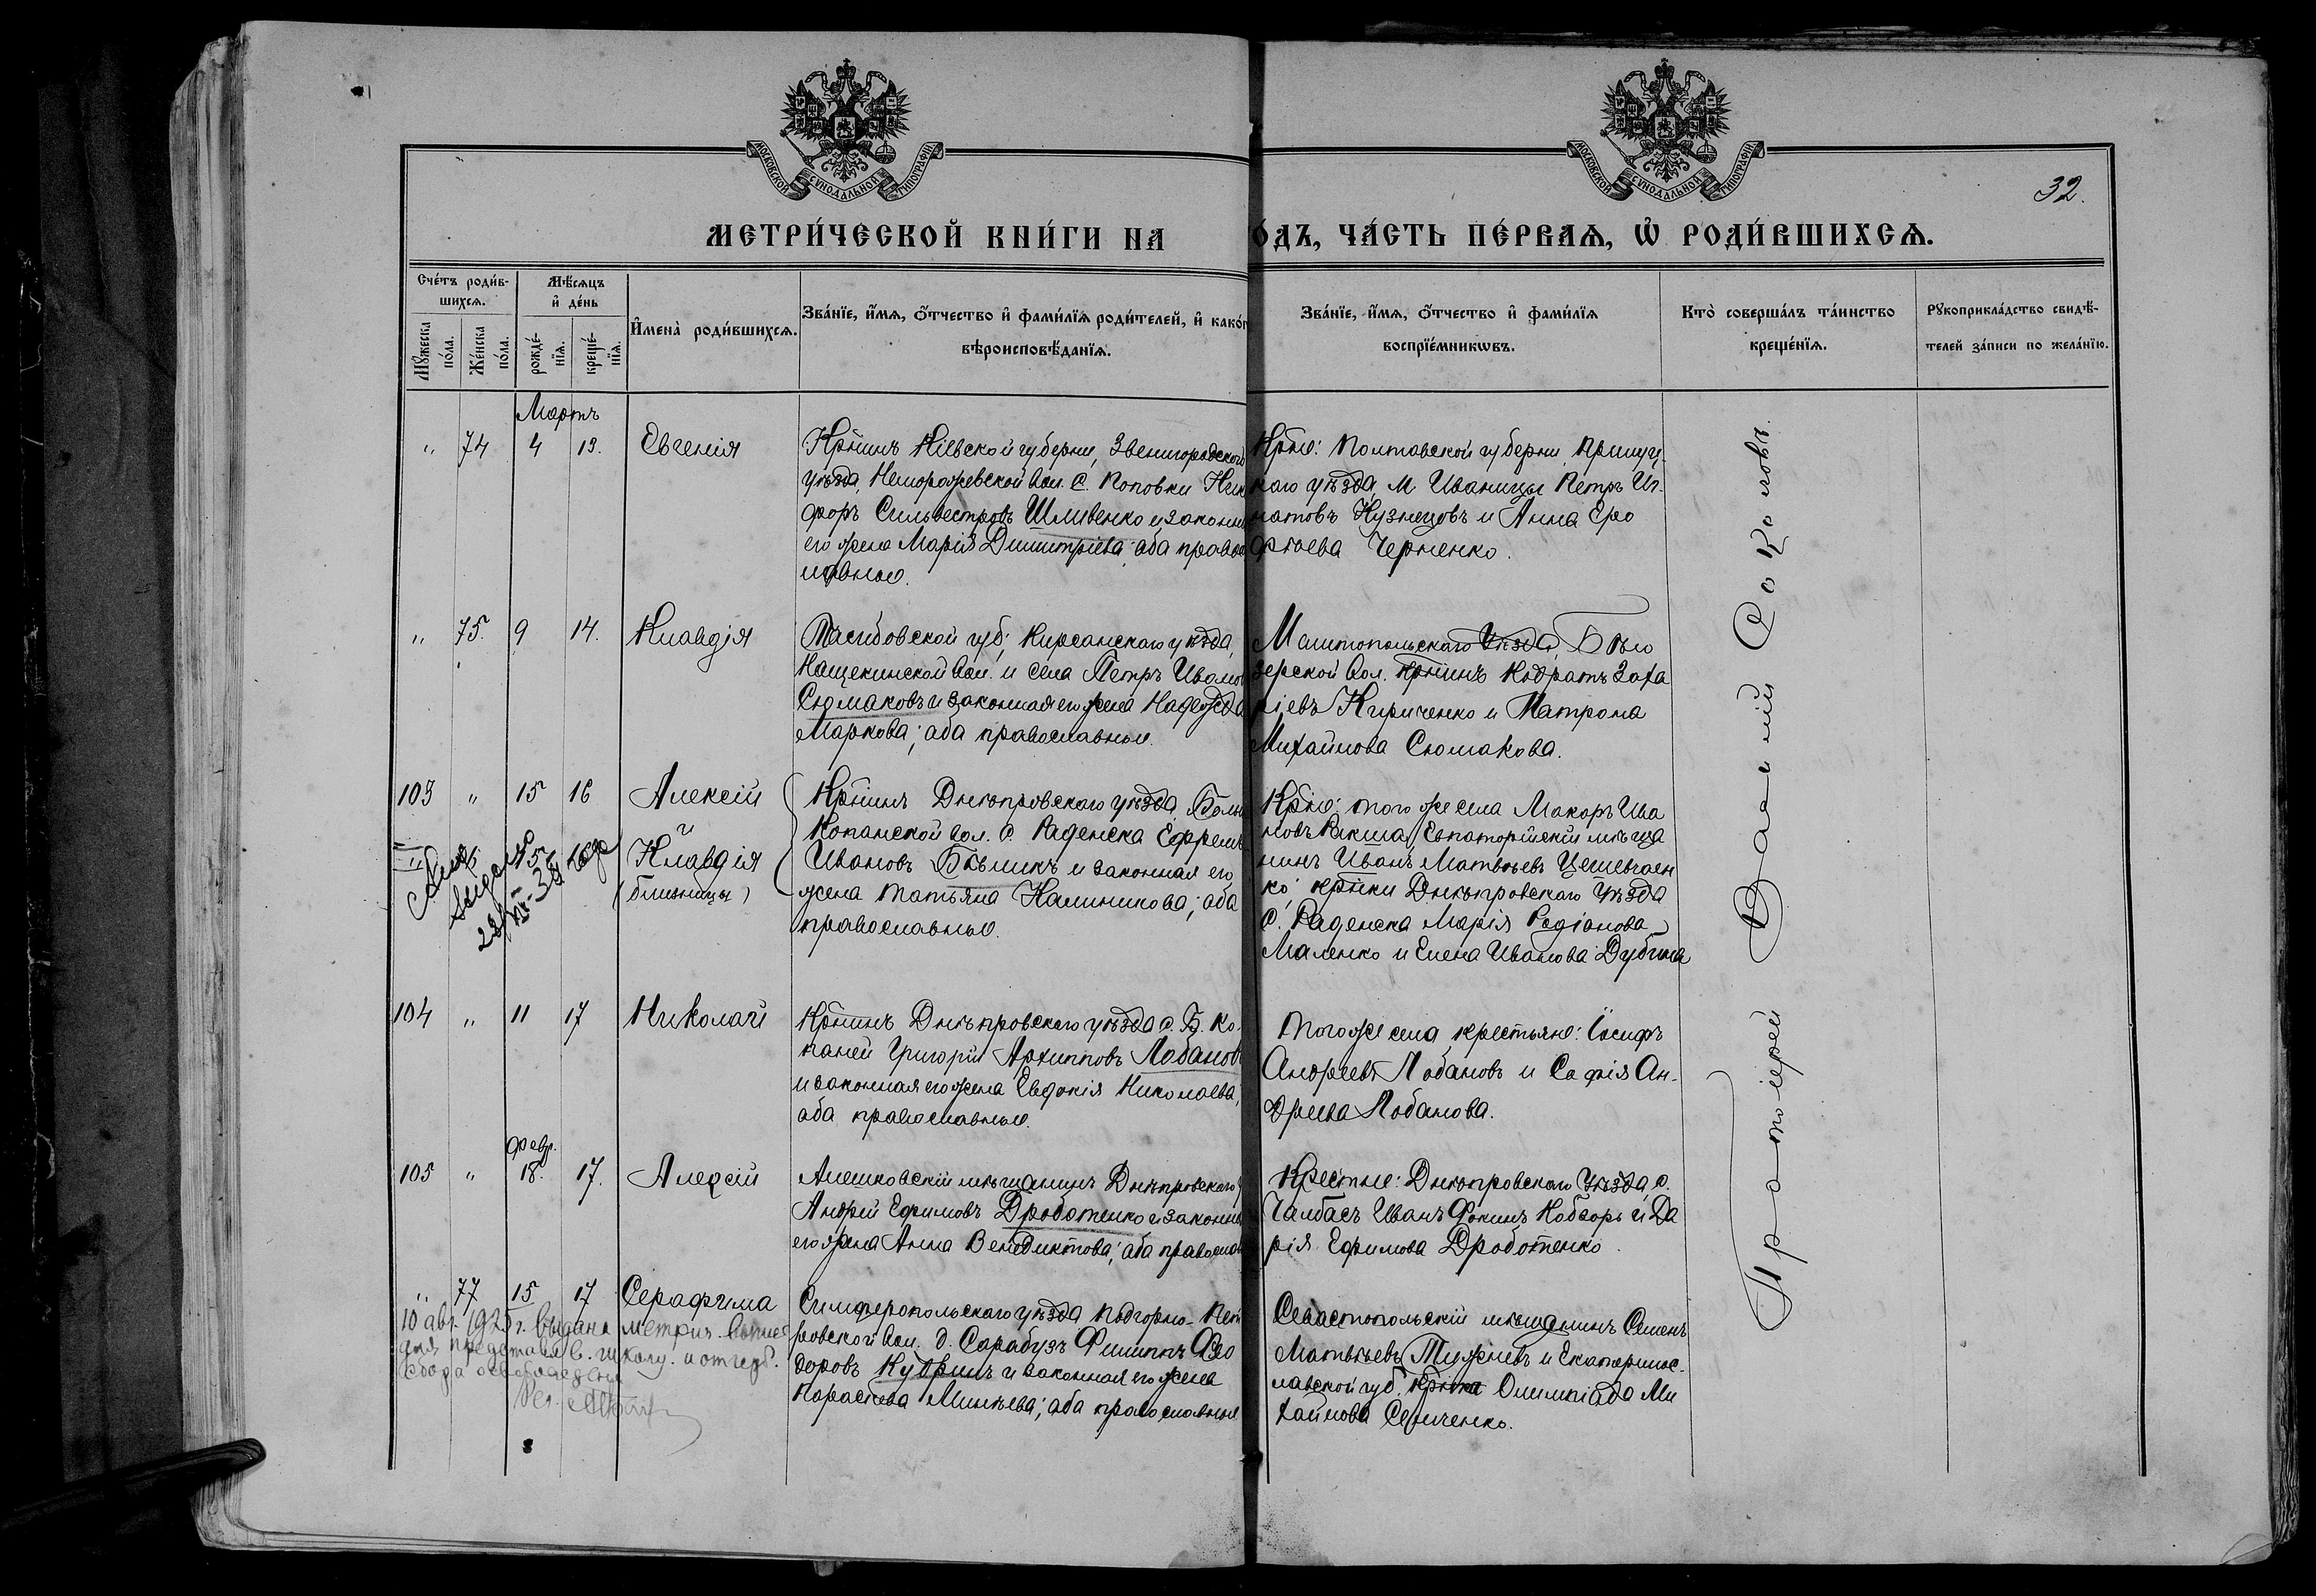 МОСКОВСКОЙ СУНОДАЛЬНОЙ ТИПОГРАФІИ
МОСКОВСКОЙ СУНОДАЛЬНОЙ ТИПОГРАФІИ
32.
МЕТРИ́ЧЕСКОЙ КНИ́ГИ НА
О́ДЪ, ЧА́СТЬ ПЕ́РВАѦ, Ѡ҆ РОДИ́ВШИХСѦ.
Сче́тъ роди́в-
шихсѧ.
Мꙋ́жеска по́ла.
Же́нска по́ла.
Мѣ́сѧцъ
и҆ де́нь
рожде́-
нїѧ.
креще́-
нїѧ.
И҆мена̀ роди́вшихсѧ.
Зва́нїе, и҆́мѧ, ѻ҆́тчество и҆ фами́лїѧ роди́телей, и҆ како́г
вѣроисповѣ́данїѧ.
Зва́нїе, и҆́мѧ, ѻ҆́тчество и҆ фами́лїѧ
воспрїе́мникѡвъ.
Кто̀ соверша́лъ та́инство
креще́нїѧ.
Рꙋкоприкла́дство свидѣ́-
телей за́писи по жела́нїю.
Мартъ
" 74 4 13. Евгенія
Крнинъ Кіевской губерніи, Звенигородскаго
уѣзда, Неморожевской вол. с. Поповки Ник
форъ Сильвестровъ Шливенко и законн
его жена Марія Димитріева; аба правос
лавные.
Крне: Полтавской губерніи Прилуц-
каго уѣзда, м Иваницы Петръ Иг-
натовъ Кузнецовъ и Анна Еро
фѣева Черненко.
" 75. 9 14. Клавдія
Тамбовской губ; Кирсанскаго уѣзда,
Нащекинской вол. и села Петръ Ивано
Сюмаковъ и законная его жена Надежда
Маркова; аба православные.
Мелитопольскаго Уѣзда, Бѣло
зерской вол. крнинъ Кодратъ Заха
ріевъ Кириченко и Матрона
Михайлова Сюмакова.
103 " 15 16 Алексій
и
Клавдія
(близнецы)
Крнинъ Днѣпровскаго уѣзда, Больш
Копанской вол. с. Раденска Ефремъ
Ивановъ Бѣликъ и законная его
жена Татьяна Калиникова; аба
православные.
Крне: того же села Макаръ Ива
новъ Ракша, Евпаторійскій мѣща
нинъ Иванъ Матвѣевъ
ко; крнки Днѣпровскаго Уѣзда
с. Раденска Марія Родіонова
Маленко и Елена Иванова Дубина
104 " 11 17 Николай
Крнинъ Днѣпровскаго уѣзда с. Б. Ко-
паней Григорій Архипповъ Лобанов
и законная его жена Евдокія Николаева,
аба православные.
Того же села, крестьяне: Іосифъ
Андреевъ Лобановъ и Софія Ан-
дреева Лобанова.
февр.
105 " 18. 17. Алексій
Алешковскій мѣщанинъ Днѣпровскаго у
Андрей Ефимовъ Дработенко и законн
его жена Анна Венедиктова; аба правосла
Крестне: Днѣпровскаго Уѣзда, с.
Чалбасъ Иванъ Фокинъ Кобзарь и Да
рія Ефимова Дработенко.
" 77 15 17 Серафима
10 авг. 1925 г. выдана метрич. выпис
для представл. в школу. и от герб.
сбора освобождена
Симферопольскаго уѣзда Подгорно-Пет
ровской вол. д. Сарабузъ Филиппъ Фео
доровъ Кудринъ и законная его жена
Параскева Минѣева; аба православные
Севастопольскій мѣщанинъ Семенъ
Матвѣевъ и Екатеринос-
лавской губ. крнка Олимпіада Ми
хайлова Семченко.
Протоіерей Василій Соколовъ.